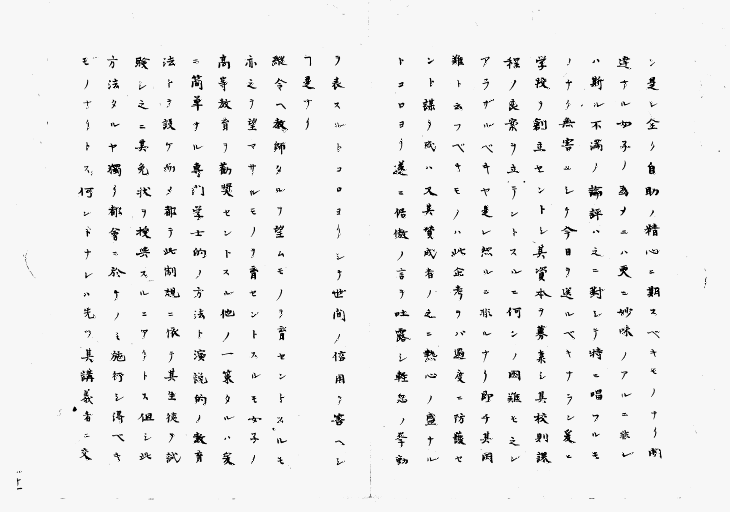 ン是レ全ク自助ノ精心ニ期スベキモノナリ閨
達ナル女子ノ為メニハ更ニ妙味ノアルニ非レ
ハ斯ル不満ノ論評ハ之ニ対シテ特ニ唱フルモ
ノナク無害ニシテ今日ヲ送ルベキナラン爰ニ
学校ヲ創立セントシ其資本ヲ募集シ其校則課
程ノ良案ヲ立ラントスルニ何ンノ困難モ之レ
アラザルベキヤ是レ然ルニ非ルナリ即チ其困
難ト云フベキモノハ此企考ヲバ過度ニ防護セ
ント謀リ或ハ又其賛成者ノ之ニ熱心ノ盛ナル
トコロヨリ遂ニ倨傲ノ言ヲ吐露シ軽忽ノ挙動
ヲ表スルトコロヨリシテ世間ノ信用ヲ害ヘシ
ヿ是ナリ
縦令ヘ教師タルヲ望ムモノヲ育セントスルモ
亦之ヲ望マサルモノヲ育セントスルモ女子ノ
高等教育ヲ勧奨セントスル他ノ一策タルハ爰
ニ簡単ナル専門学士的ノ方法ト演説的ノ教育
法トヲ設ケ而メ都テ此制規ニ依テ其生徒ヲ試
験シ之ニ其免状ヲ授与スルニアリトス但シ此
方法タルヤ独リ都会ニ於テノミ施行シ得ベキ
モノナリトス何ントナレハ先ツ其講義者ニ交